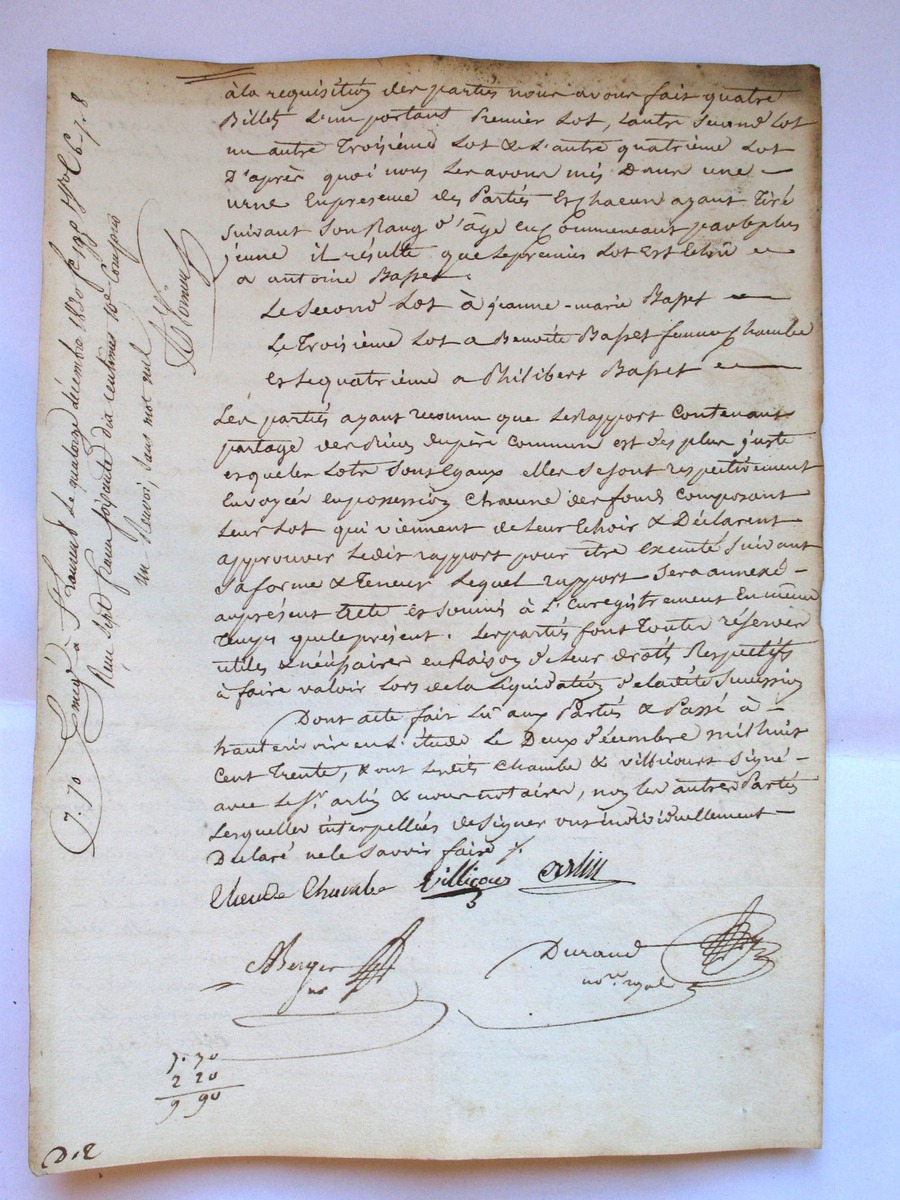 à la requisition des parties nous avons fait quatre
Billets L'un portant Premier Lot, L'autre second Lot
un autre Troisième Lot & L'autre quatrième Lot
D'après quoi nous Les avons mis Dans une
urne En presence des Parties Et chacun ayant Tiré
suivant son Rang d'âge en Commençant par le plus
jeune il résulte que Le premier Lot est Echu
a antoine Basset.
Le Second Lot à jeanne-marie Basset
Le Troisième Lot a Benoite Basset femme Chambe
Et Le quatrième a Philibert Basset
Les parties ayant reconnu que Le Rapport Contenant
partage des Biens du père Commun est des plus juste
et que les Lots sont Egaux elles se sont respectivement
Envoyées en possession chacune des fonds composant
Leur Lot qui viennent de Leur Echoir & Déclarent
approuver Ledit rapport pour être Executé suivant
sa forme & Teneur Lequel rapport sera annexé
au présent acte et soumis à L'Enregistrement En même
Temps que le présent. Les parties font Toutes réserves
utiles & néssaires en Raison de Leur droits Respectifs
à faire valoir Lors de la Liquidation de ladite Succession
Dont acte fait Lu aux Parties & Passé à
haute rivoire en L'étude Le Deux décembre mil huit
cent Trente, & ont Lesdits Chambe & Villicour signé
avec Le Sr. arlin & nous notaires, non Les autres Parties
Lesquelles interpellées de signer ont individuellement
Declaré ne le savoir faire ./.
Claude Chambe Villicour arlin
Berger
nre
Durand
nore. royal
7. 70
2 20
9 90
Enregé. à St Laurent Le quatorze décembre 1830 fo 198 Vo C 6-7. 8
Reçu sept francs soixante dix centimes 10e Compris
un Renvoi, sans mot nul
7. 70